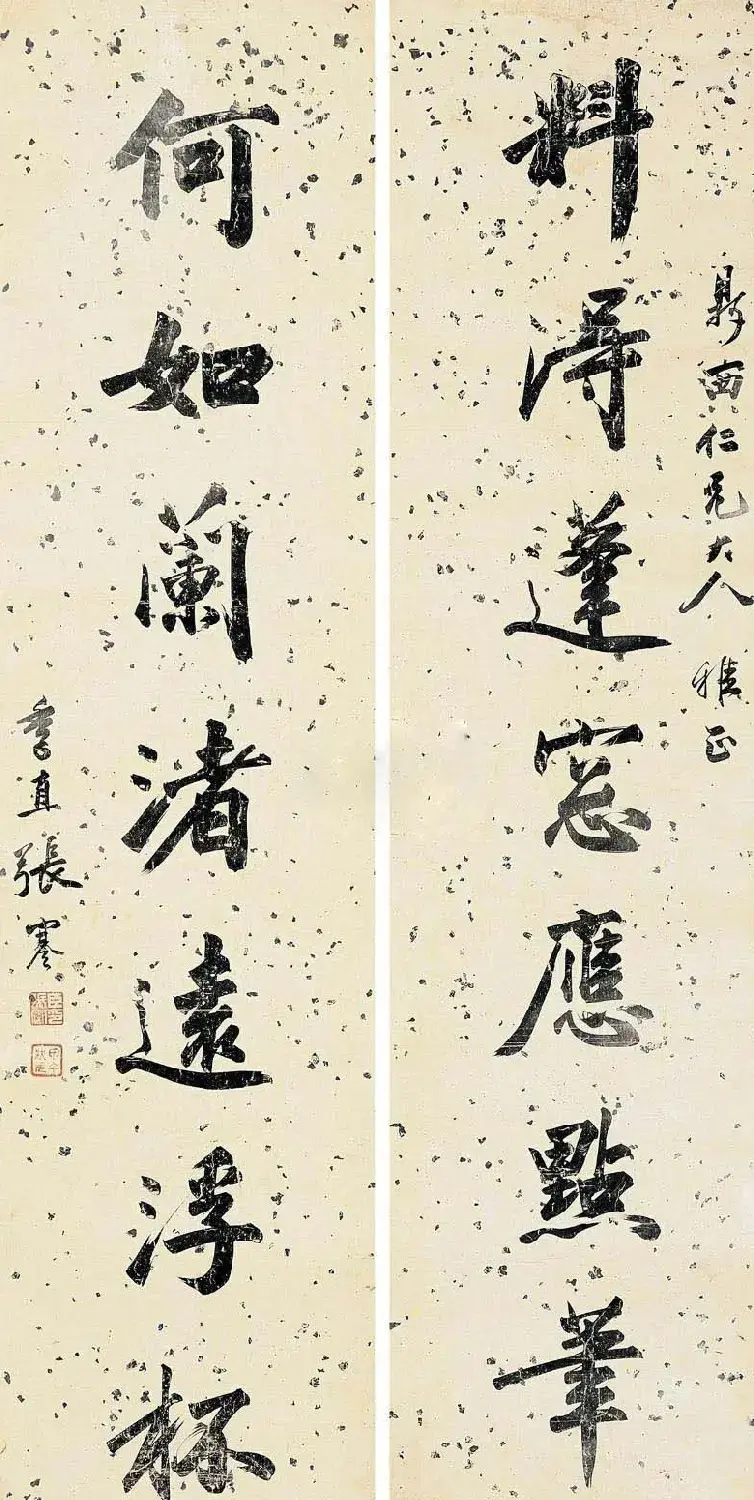 仁兄大人 雅正
料得蓬窓應點筆
何如蘭渚遠浮杯
季直張謇
甲午狀元